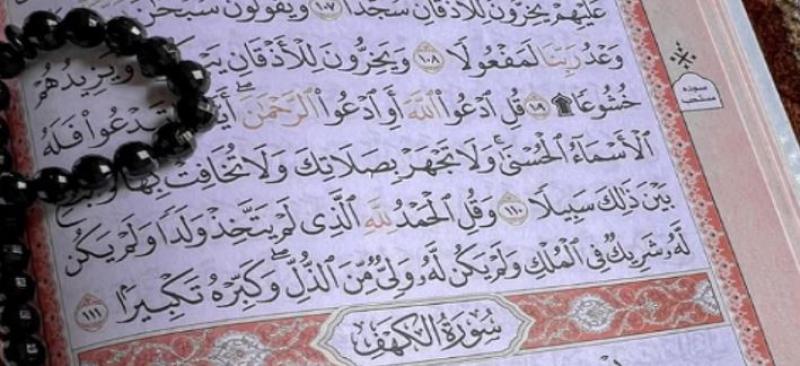 عَلَيْهِمْ يَخِرُّونَ لِلْأَذْقَانِ سُجَّدًا ١٠٧ وَيَقُولُونَ سُبْحَٰنَ
وَعْدُ رَبِّنَا لَمَفْعُولًا ١٠٨ وَيَخِرُّونَ لِلْأَذْقَانِ وَيَزِيدُهُمْ
خُشُوعًا ۩ ١٠٩ قُلِ ٱدْعُوا۟ ٱللَّهَ أَوِ ٱدْعُوا۟ ٱلرَّحْمَٰنَ ۖ تَدْعُوا۟ فَلَهُ
ٱلْأَسْمَآءُ ٱلْحُسْنَىٰ ۚ وَلَا تَجْهَرْ بِصَلَاتِكَ وَلَا تُخَافِتْ بِهَا
بَيْنَ ذَٰلِكَ سَبِيلًا ١١٠ وَقُلِ ٱلْحَمْدُ لِلَّهِ ٱلَّذِى لَمْ يَتَّخِذْ وَلَدًا وَلَمْ يَكُن
لَّهُۥ شَرِيكٌ فِى ٱلْمُلْكِ وَلَمْ يَكُن لَّهُۥ وَلِىٌّ مِّنَ ٱلذُّلِّ ۖ وَكَبِّرْهُ تَكْبِيرًۢا ١١١
سُورَةُ الْكَهْفِ
سجده
مستحب